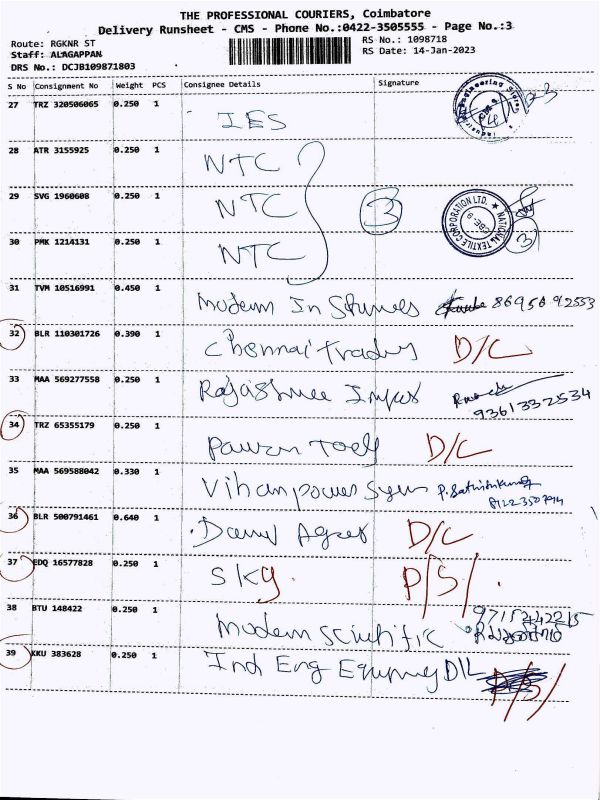 THE PROFESSIONAL COURIERS, Coimbatore
Delivery Runsheet - CMS - Phone No.:0422-3505555 - Page No.:3
Route: RGKNR ST
RS No.: 1098718
Staff: ALAGAPPAN
RS Date: 14-Jan-2023
DRS No.: DCJB109871803
S No Consignment No Weight PCS Consignee Details Signature
27 TRZ 320506065 0.250 1 IES
28 ATR 3155925 0.250 1 NTC
29 SVG 1960608 0.250 1 NTC 3
NATIONAL TEXTILE CORPORATION LTD.
30 PMK 1214131 0.250 1 NTC 3
31 TVM 10516991 0.450 1 Modern In 86956 92553
32 BLR 110301726 0.390 1 Chennai Trades D/C
33 MAA 569277558 0.250 1 Rajashree 9361332534
34 TRZ 65355179 0.250 1 D/C
35 MAA 569588042 0.330 1 Vihan power
36 BLR 500791461 0.640 1 D/C
37 EDQ 16577828 0.250 1 Skg. P/S/.
38 BTU 148422 0.250 1 Modern Scientific
39 KKU 383628 0.250 1 Ind Eng D/L P/S/